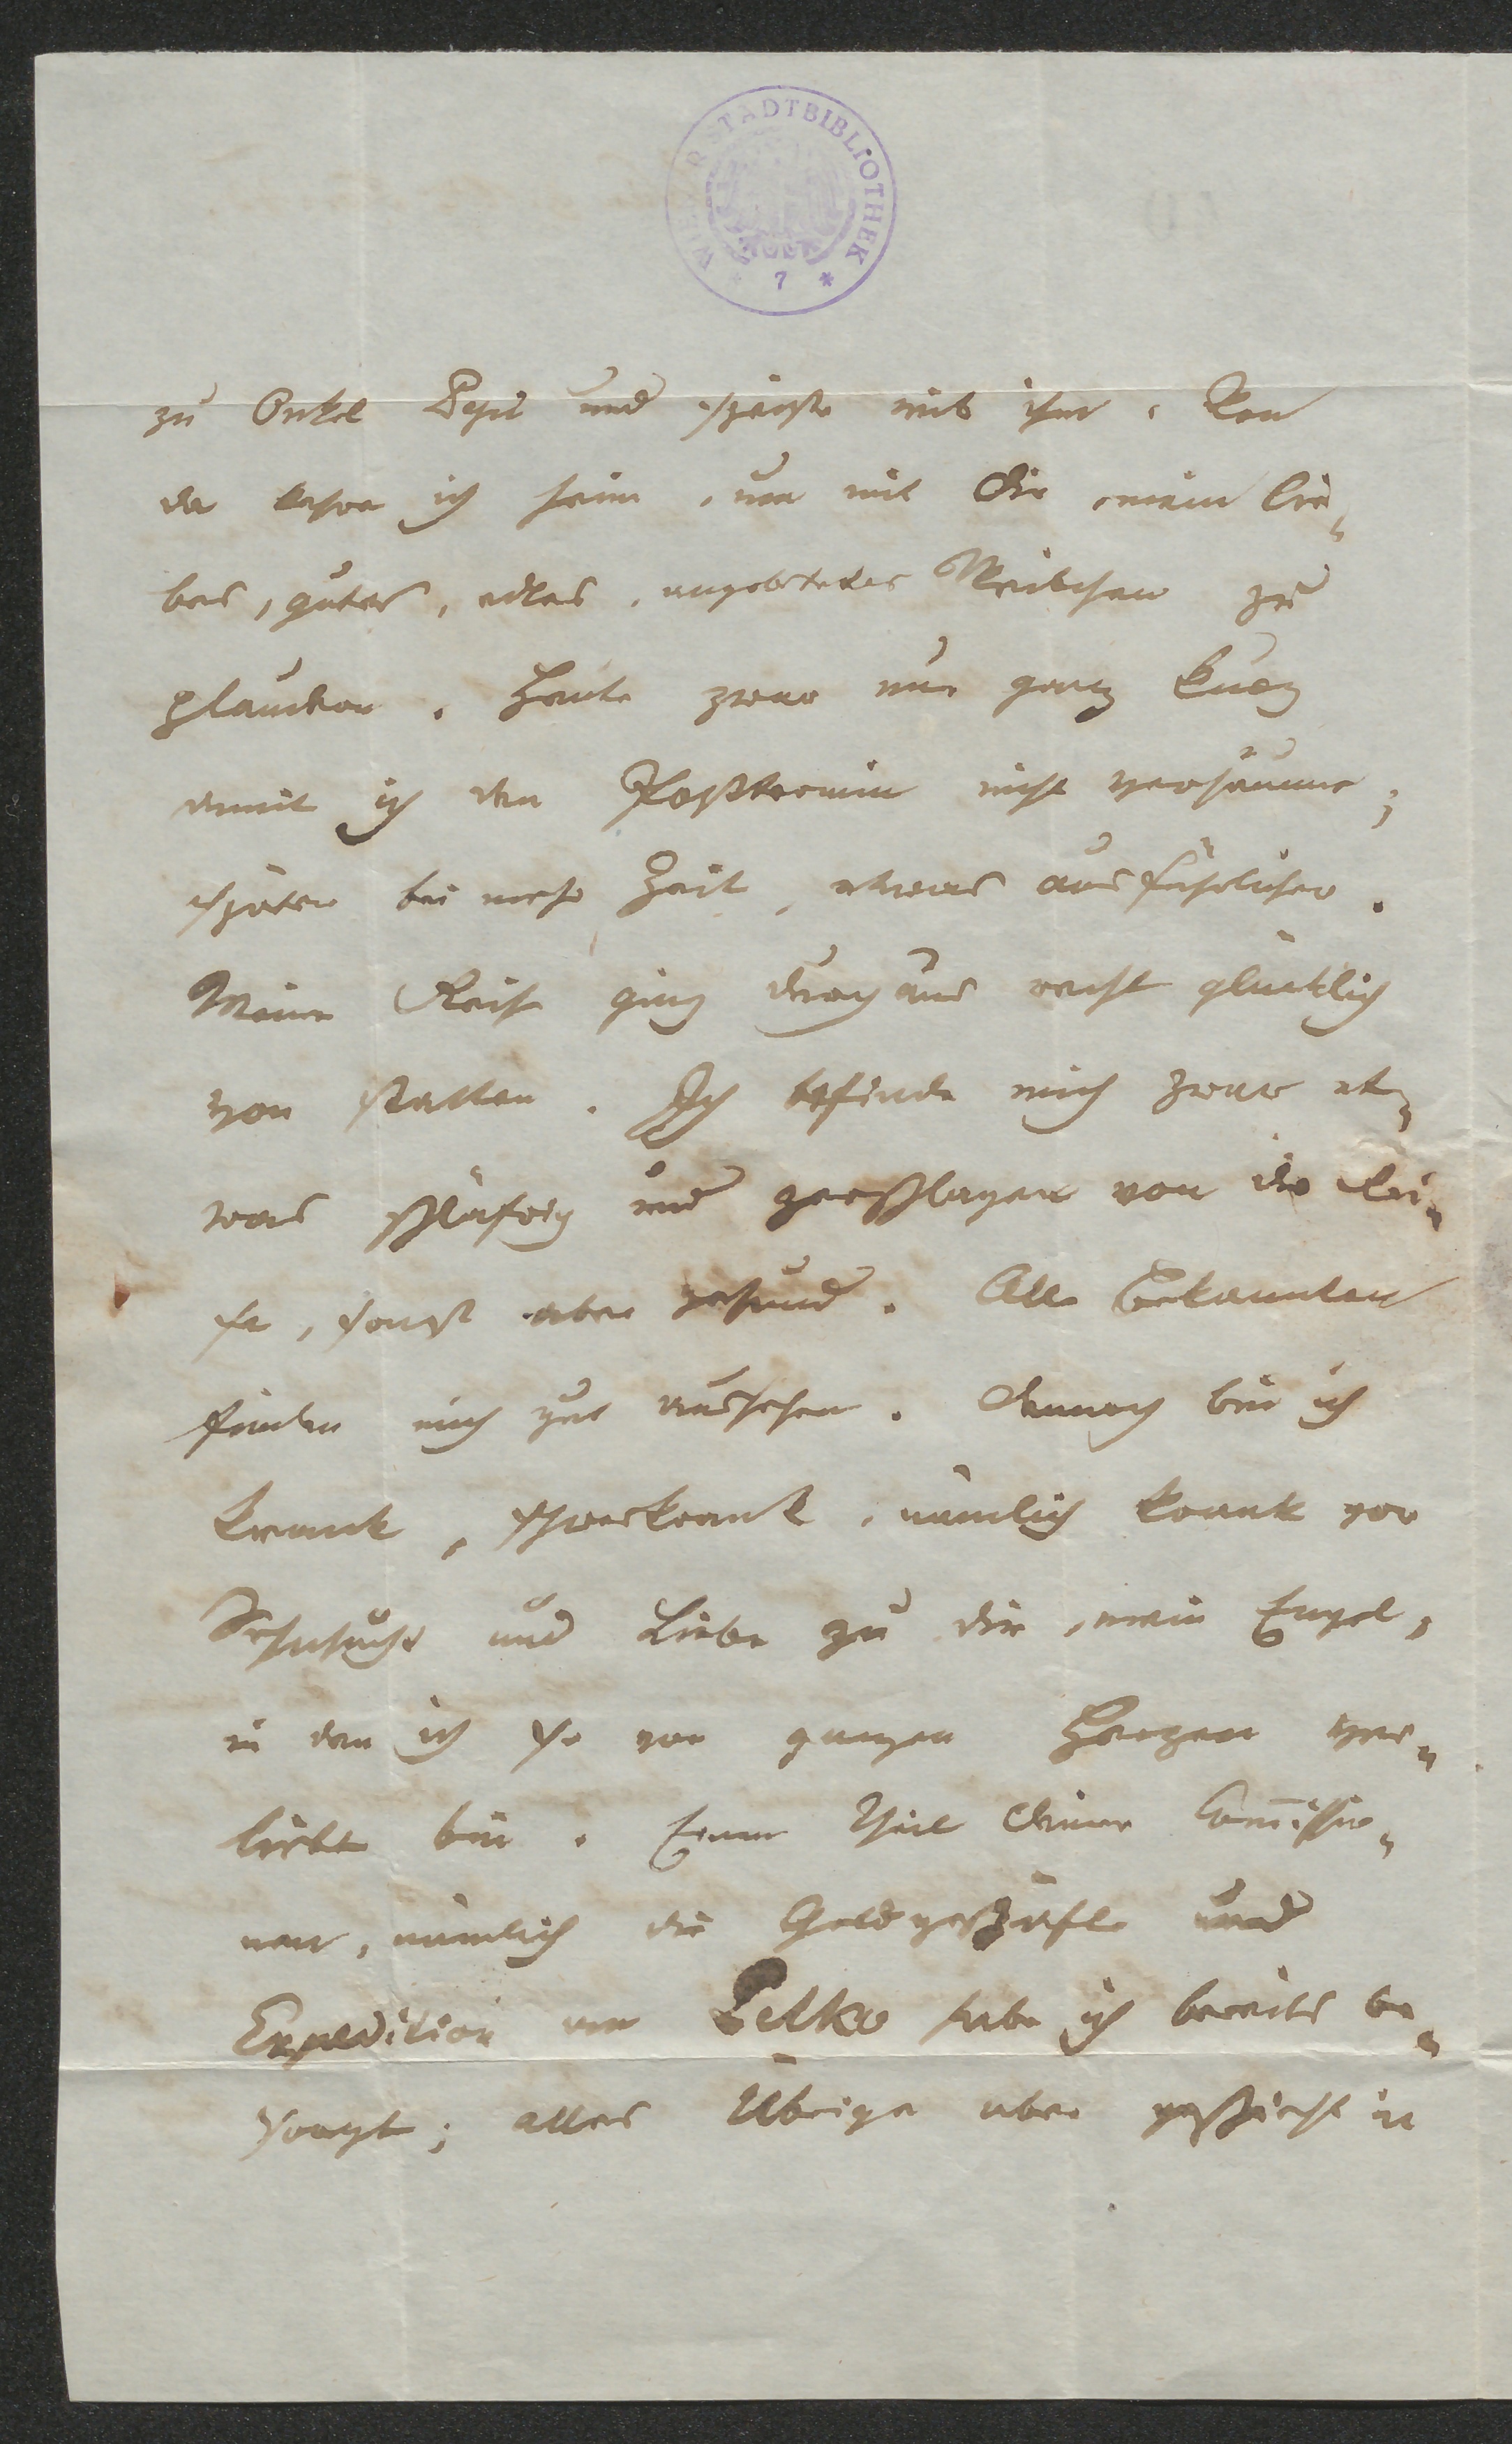 WIENER STADTBIBLIOTHEK
* 7 *
zu Onkel Pepi und speiste mit ihm. Von
da kehre ich heim, um mit Dir, mein lie„
bes, gutes, edles, angebetetes Weibchen zu
plaudern. Heute zwar nur ganz kurz
damit ich den Posttermin nicht versäume;
später bei mehr Zeit, etwas ausführlicher.
Meine Reise ging durchaus recht glücklich
von statten. Ich befinde mich zwar et„
was schläfrig und zerschlagen von der Rei„
se, sonst aber gesund. Alle Bekannten
finden mich gut aussehen. Dennoch bin ich
krank, schwerkrank, nämlich krank vor
Sehnsucht und Liebe zu Dir, mein Engel,
in den ich so von ganzen Herzen ver„
liebt bin. Einen Theil Deiner Com̄issio„
nen, nämlich die Geldgeschäfte und
Expedition an Petko habe ich bereits be„
sorgt; alles Übrige aber geschieht in